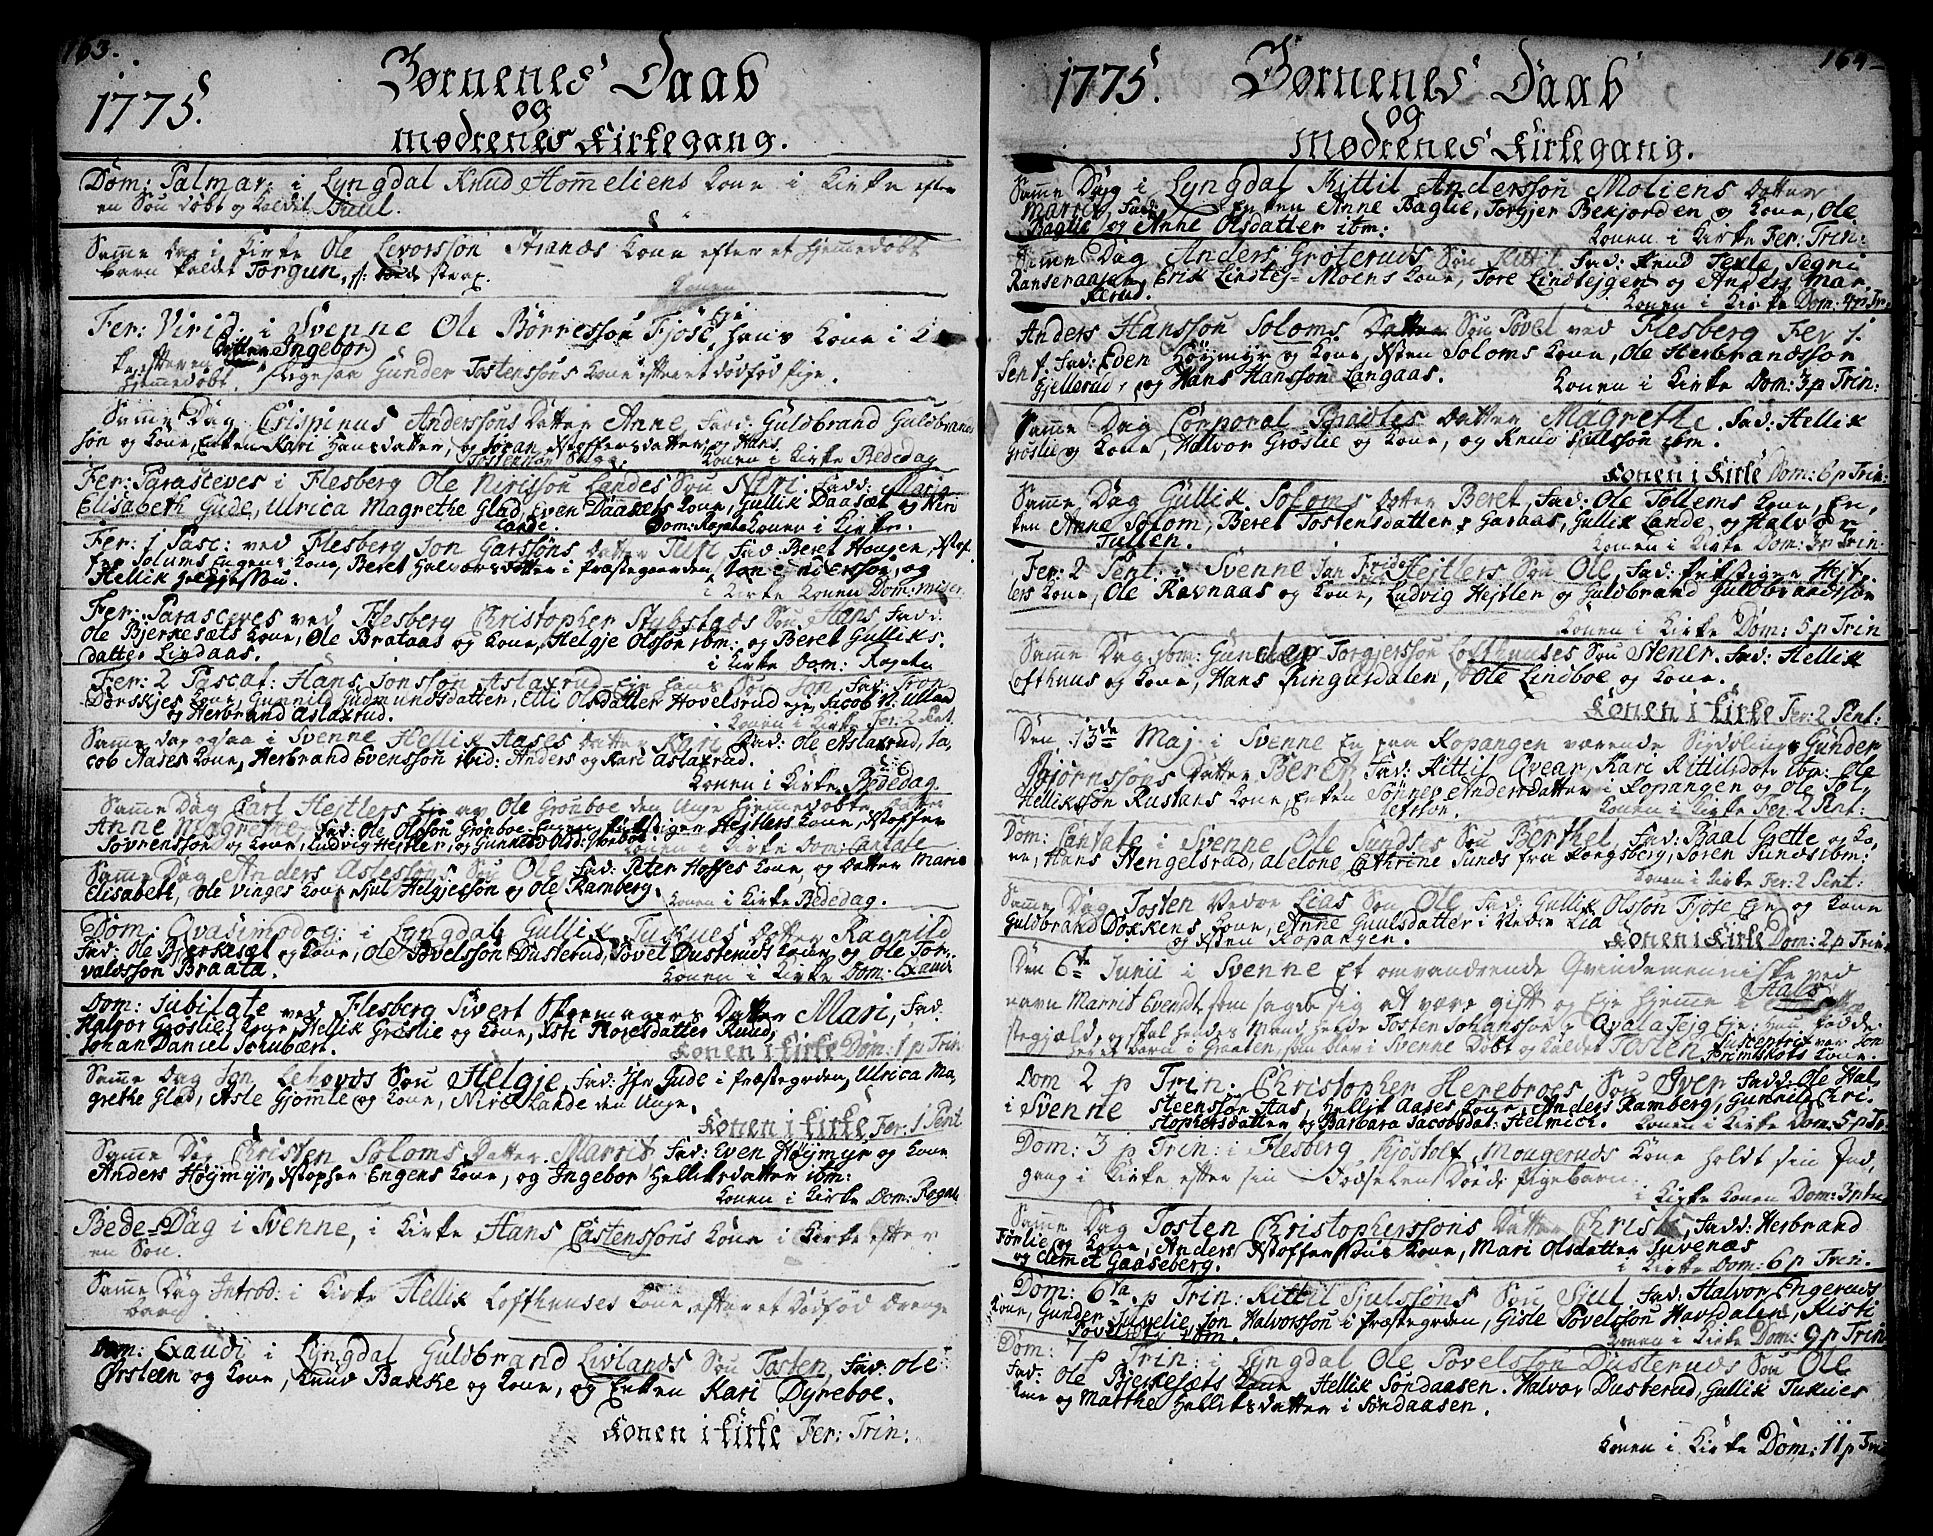 163.
1775. Børnenes Daab
og
Mødrenes Kirkegang.
Dom: Palmar: i Lyngdal Knud Hommeliens Kone i Kirke efter
en Søn døbt og kaldet
Samme Dag i Kirke Ole Levorssøn Stranæs Kone efter et hjemmedøbt
barn kaldet Torgun, strax.
Fer: Virid: i Svenne Ole Børressøn Fjose Eje hans Kone i Kir
ke efter en Datter Ingebor
hjemmedøbt. Ligesaa Gunder Tostenssøns Kone efter et dødfød Pige.
Samme Dag Crispinus Anderssøns Datter Anne, Fad: Guldbrand Guldbrands
søn og Kone, Enken Kari Hansdatter, og Joran Xstoffersdatter, og Hans
Tostenssøn Konen i Kirke Bededag
Fer: Parasceves i Flesberg Ole Nirissøn Landes Søn Niri, Fadd: Maria
Elisabeth Gude, Ulrica Magrethe Glad, Even Daasets Kone, Gullik Daaset og Niri
Lande. Dom: Rogate Konen i Kirke.
Fer: 1 Pasc: ved Flesberg Jon Garssøns Datter Fad Beret Hougen, Xstof
fer Solums Engens Kone, Beret Halvorsdatter i Præstegaarden, og
Hellik i Kirke Konen Dom: miser.
Fer: Parasceves ved Flesberg Christopher Stybstads Søn Hans, Fadd:
Ole Bjerkesæts Kone, Ole Brataas og Kone, Helgje Olssøn ibm: og Beret Gulliks
datter Lindaas. i Kirke Dom: Rogate
Fer: 2 Pascat: Hans Jonssøn Aslaxrud-Eje hans Søn Jon, Fad: Tron
Dørskjes Kone, Gunnild Gudmundsdatter, Elli Olsdatter Hovelsrud eje, Jacob N: Ulland
og Herbrand Aslaxrud. Konen i Kirke Fer: 2 Pent.
Samme dag ogsaa i Svenne Hellik Aases Datter Kari Fad: Ole Aslaxrud, Ja
cob Aases Kone, Herbrand Evenssøn ibid: Anders og Kari Aslaxrud.
Konen i Kirke Bededag.
Samme Dag Carl Hejtlers Eje av Ole Grønboe den Unge hjemmedøbte Datter
Anne Magrethe, Fad: Ole Olssøn Grønboe Hejtlers Kone, Xstoffer
Sovrenssøn og Kone, Ludvig Hejtler, og Gunnild Konen i Kirke Dom: Cantate
Samme Dag Anders Aslessøns Søn Ole Fad: Peter Hofses Kone og Datter Maria
Elisabeth, Ole Vinges Kone, Sjul Helgjessøn og Ole Ramberg. Konen i Kirke Bededag.
Dom: Qvasimodog: i Lyngdal Gullik Tuknes Datter Ragnild
Fad: Ole Bjerkesæt og Kone, Ole Povelssøn Dusterud, Povel Dusteruds Kone og Ole Tor
valdssøn Braata. Konen i Kirke Dom: Exaudi
Dom: Jubilate ved Flesberg Sivert Skomagers Datter Mari, Fad.
Halvor Groslies Kone, Hellik Groslie og Kone, Asti Ruud,
Johan Daniel Schubært. Konen i Kirke Dom: 1 p Trin
Samme Dag Jon Lehovds Søn Helgje, Fad: Hr Gude i Præstegrden, Ulrica Ma
grethe Glad, Asle Gjomle og Kone, Niri Lande den Unge.
Konen i Kirke Fer: 1 Pent
Samme Dag Christen Soloms Datter Marrit Fad: Even Høymyr og Kone
Anders Høymyr, Xstopher Engens Kone, og Ingebor Helliksdatter ibm:
Konen i Kirke Dom: Rogate
Bede-Dag i Svenne, i Kirke Hans Castenssøns Kone i Kirke efter
en Søn.
Samme Dag Introd: i Kirke Hellik Lofthuuses Kone, efter et Dødfød drenge
barn
Dom: Exaudi i Lyngdal Guldbrand Livlands Søn Tosten, Fad: Ole
Ørsteen og Kone, Knud Bakke og Kone, og Enken Kari Dyreboe.
Konen i Kirke Fer: Trin:
164
1775. Børnenes Daab
og
Mødrenes Kirkegang.
Samme Dag i Lyngdal Kittil Anderssøn Moliens Datter
Marrit, Fad: Enken Anne Baglie, Torgjer Bekjorden og Kone, Ole
Baglie og Anne Olsdatter ibm: Konen i Kirke Fer: Trin:
Samme Dag Anders Groteruds Søn Kittil Fad: Knud Texle, Segni
Ranseraasen, Erik Lindtej-Moens Kone, Tore Lindtejgen og Anders Mar
Konen i Kirke Dom: 4 p Tr:
Anders Hanssøn Soloms Søn Povel ved Flesberg Fer 1.
Pent. Fad: Even Høymyr og Kone, Xsten Soloms Kone, Ole Herbrandssøn
Gjellerud, og Hans Hanssøn Langaas. Konen i Kirke Dom: 3 p Trin:
Samme Dag Corporal Bradtes Datter Magrethe Fad: Hellik
Groslie og Kone, Halvor Groslie og Kone, og Knud Sjulssøn ibm.
Konen i Kirke Dom: 6 p Trin:
Samme Dag Gullik Soloms Datter Beret, Fad: Ole Tollens Kone, En,
ken Anne Solom, Beret Tostensdatter Garaas, Gullik Lande og Halvor
Tullen. Konen i Kirke Dom: 3 p Trin
Fer: 2 Pent: i Svenne Jan Hejtlers Søn Ole, Fad: Hejt,
lers Kone, Ole Ravnaas og Kone, Ludvig Hejtler og Guldbrand Guldbrandssøn
Konen i Kirke Dom: 5 p Trin
Samme Dag ibm: Gunder Torgjerssøn Lofthuuses Søn Stener. Fad: Hellik
Lofthuus og Kone, Hans Ringarsdalen, Ole Lindboe og Kone.
Konen i Kirke Fer: 2 Pent:
Den 13de Maj i Svenne En fra Kopangen værende Gunder
Bjørnssøns Datter Beret Fad: Kittil Qvear, Kari Kittilsdotr ibm: Ole
Hellikssøn Rustans Kone, Enken Andersdatter i Kopangen og Ole
Konen i Kirke Fer: 2 Pent:
Dom: Cantate i Svenne Ole Sundses Søn Berthel Fad: Baal Grette og Ko,
ne, Hans Hengelsrud, Adelone Cathrine Sunds fra Kongsberg, Soren Sunds ibm:
Konen i Kirke Fer: 2 Pent:
Samme Dag Tosten Vedre Lias Søn Ole Fad: Gullik Olssøn Fjose Eje og Kone
Guldbrand Doxkens Kone, Anne Guulsdatter i Vedre Lia
og Xsten Kopangen. Konen i Kirke Dom: 2 p Trin
Den 6te Junii i Svenne Et omvandrende Qvindemenniske ved
navn Marrit som sagde sig at være gift og Eje hjemme i Hals
stegjæld, og skal hendes Mand hede Tosten Johanssøn
heres Barn i som blev i Svenne døbt og kaldet Tosten Susceptrix var Jon
Kone.
Dom 2 p Trin: Christopher Herebroes Søn Iver Fadd: Ole Hal,
i Svenne steenssøn Aas, Hellik Aases Kone, Anders Ramberg, Gunnild Chri.
stophersdatter og Barbara Jacobsdat: Helmich. Konen i Kirke Dom: 5 p Tr
Dom: 3 p Trin: i Flesberg Kjøstolf Mougeruds Kone holdt sin Ind,
gang i Kirke efter sin Dødfødde Pigebarn.
i Kirke Konen Dom: 3 p Trin
Samme Dag Tosten Christopherssøns Datter Christi, Fadd: Herbrand
Forlie og Kone, Anders Xstoffersøns Kone, Mari Olsdatter Juvenæs
og Clemet Gaaseberg. i Kirke Dom: 6 p Trin.
Dom: 6ta p Trin: Kittil Sjulssøns Søn Sjul Fad: Halvor Engeruds
Kone, Gunder Juvelie, Jon Halvorssøn i Præstegrden, Gisle Povelssøn Havsdalen, Kisti
Povelsdtr ibm. Konen i Kirke Dom: 9 p Trin
Dom: 7 p Trin: i Lyngdal Ole Povelssøn Dusteruds Søn Ole
Fad: Ole Bjerkesæts Kone Hellik Søndaasen. Halvor Dusterud, Gullik Tuknes
Kone og Marthe Helliksdatter i Søndaasen.
Konen i Kirke Dom: 11 p Trin